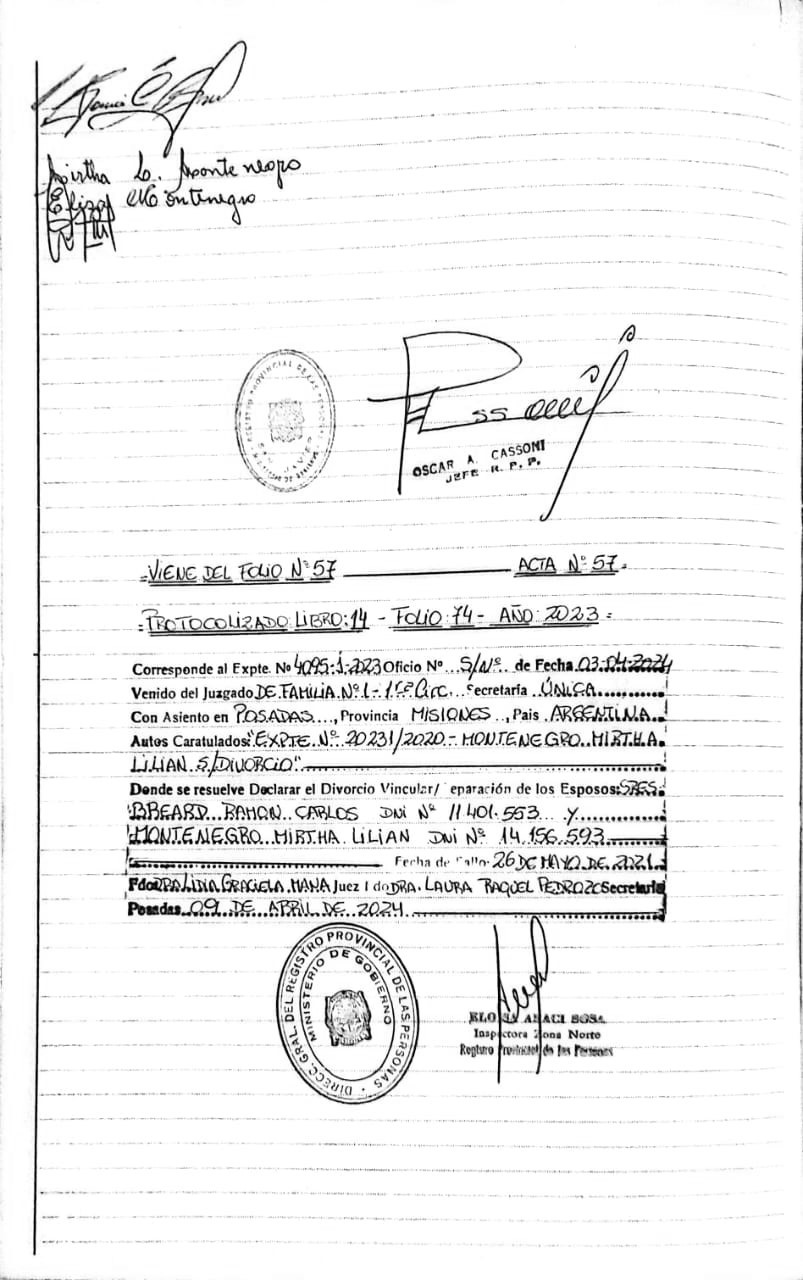 Mirtha L. Montenegro
Eliza Montenegro
REGISTRO PROVINCIAL DE LAS PERSONAS
SAN JAVIER
OSCAR A. CASSONI
JEFE R. P. P.
=VIENE DEL FOLIO Nº 57 ACTA Nº 57.=
=PROTOCOLIZADO LIBRO: 14 - FOLIO: 74 - AÑO: 2023=
Corresponde al Expte. Nº 4095-1-2023 Oficio Nº S/Nº. de Fecha 03-04-2024
Venido del Juzgado DE FAMILIA Nº 1 - 1ª Circ. Secretaría ÚNICA
Con Asiento en POSADAS, Provincia MISIONES, Pais ARGENTINA
Autos Caratulados: "EXPTE. Nº 20231/2020 - MONTENEGRO MIRTHA
LILIAN S/DIVORCIO"
Donde se resuelve Declarar el Divorcio Vincular/ eparación de los Esposos: SRES.
BREARD RAMON CARLOS DNI Nº 11.401.553 Y
MONTENEGRO MIRTHA LILIAN DNI Nº 14.156.593
Fecha de Fallo 26 DE MAYO DE 2021
Fdo DRA. LIDIA GRACIELA Juez Fdo DRA. LAURA RAQUEL PEDROZO Secretaria
Posadas, 09 DE ABRIL DE 2024
DIRECC. GRAL. DEL REGISTRO PROVINCIAL DE LAS PERSONAS
MINISTERIO DE GOBIERNO
SOSA
Inspectora Zona Norte
Registro Provincial de las Personas